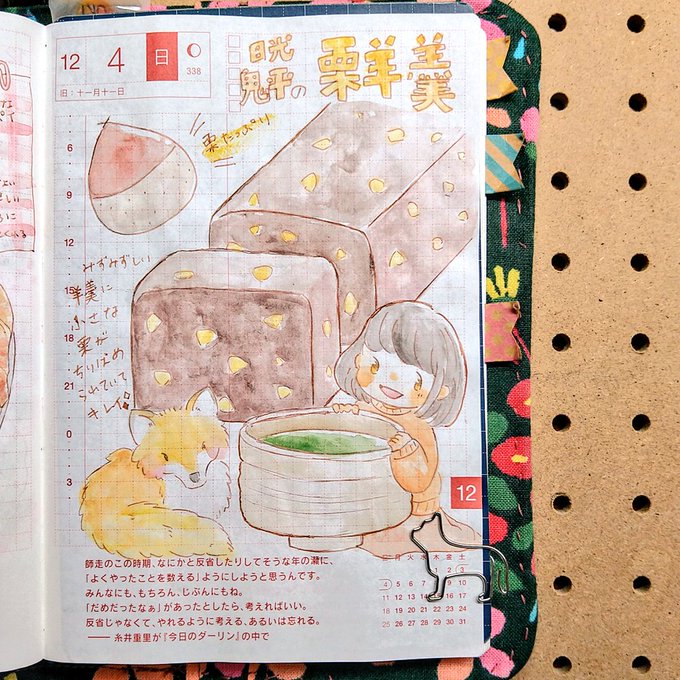 12 4 日
338
旧：十一月十一日
日光
鬼平の 栗羊羹
栗たっぷり
みずみずしい
羊羹に
小さな
栗が
ちりばめ
られていて
キレイ
6
9
12
15
18
21
0
3
12
師走のこの時期、なにかと反省したりしてそうな年の瀬に、
「よくやったことを数える」ようにしようと思うんです。
みんなにも、もちろん、じぶんにもね。
「だめだったなぁ」があったとしたら、考えればいい。
反省じゃなくて、やれるように考える、あるいは忘れる。
── 糸井重里が『今日のダーリン』の中で
月 火 水 木 金 土
1 2 3
4 5 6 7 8 9 10
11 12 13 14
18 19 20 21 22 23 24
25 26 27 28 29 30 31